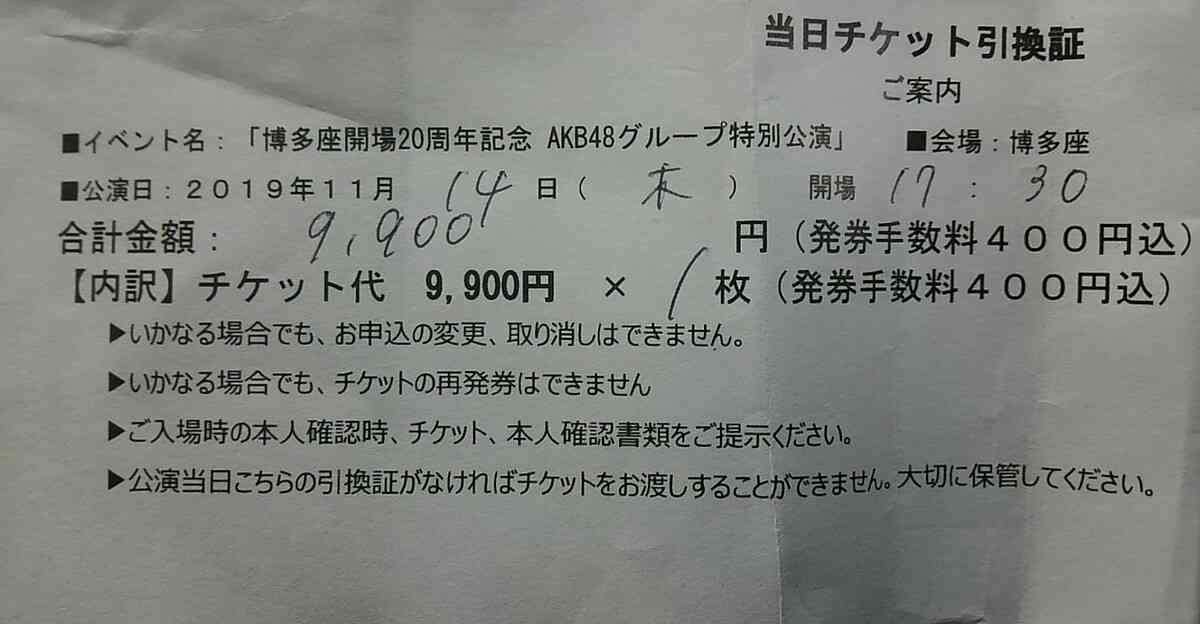 当日チケット引換証
ご案内
■イベント名：「博多座開場20周年記念 AKB48グループ特別公演」 ■会場：博多座
■公演日：２０１９年１１月 14 日（ 木 ） 開場 17 ： 30
合計金額： 9,900 円（発券手数料４００円込）
【内訳】チケット代 9,900円 × 1 枚（発券手数料４００円込）
▶いかなる場合でも、お申込の変更、取り消しはできません。
▶いかなる場合でも、チケットの再発券はできません
▶ご入場時の本人確認時、チケット、本人確認書類をご提示ください。
▶公演当日こちらの引換証がなければチケットをお渡しすることができません。大切に保管してください。